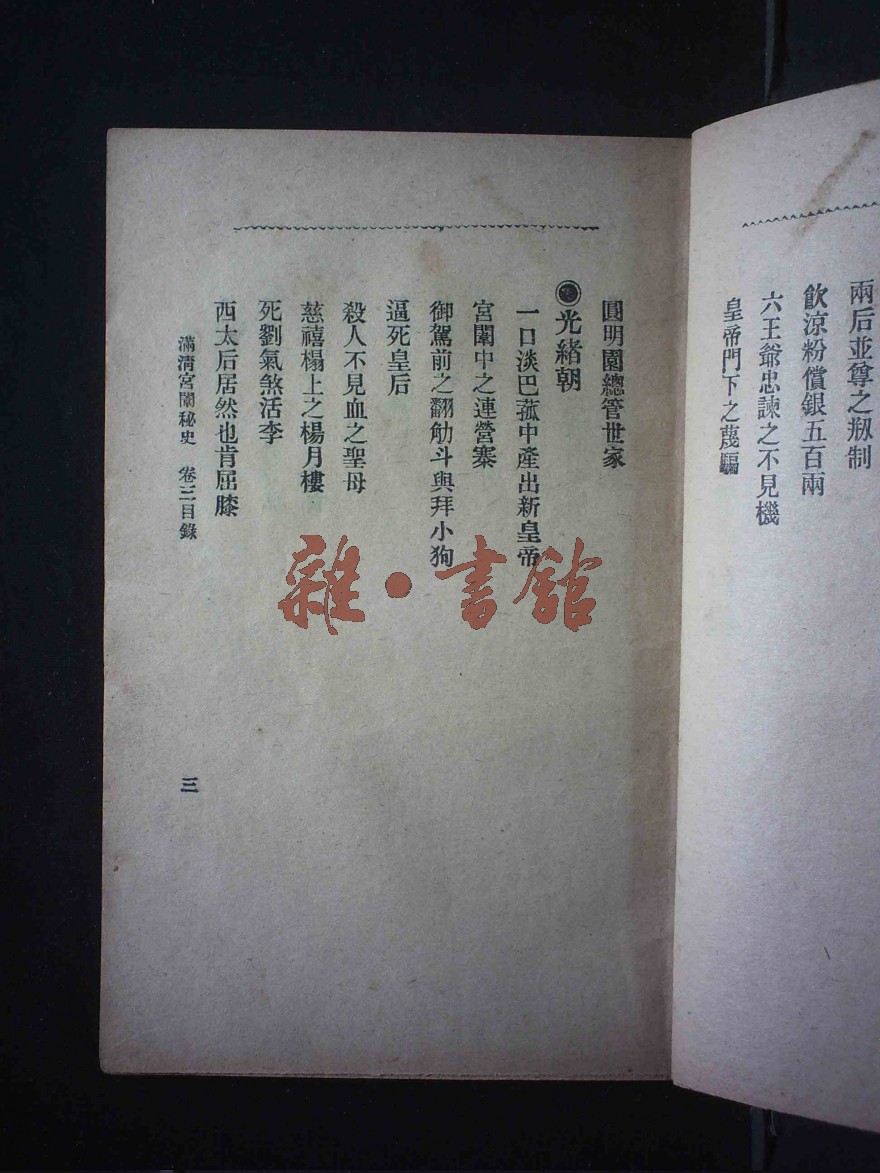 兩后並尊之剏制
飲涼粉償銀五百兩
六王爺忠諫之不見機
皇帝門下之蔑騙
圓明園總管世家
◉光緒朝
一口淡巴菰中產出新皇帝
宮闈中之連營寨
御駕前之翻觔斗與拜小狗
逼死皇后
殺人不見血之聖母
慈禧榻上之楊月樓
死劉氣煞活李
西太后居然也肯屈膝
滿清宮闈秘史 卷三目錄
三
雜·書館